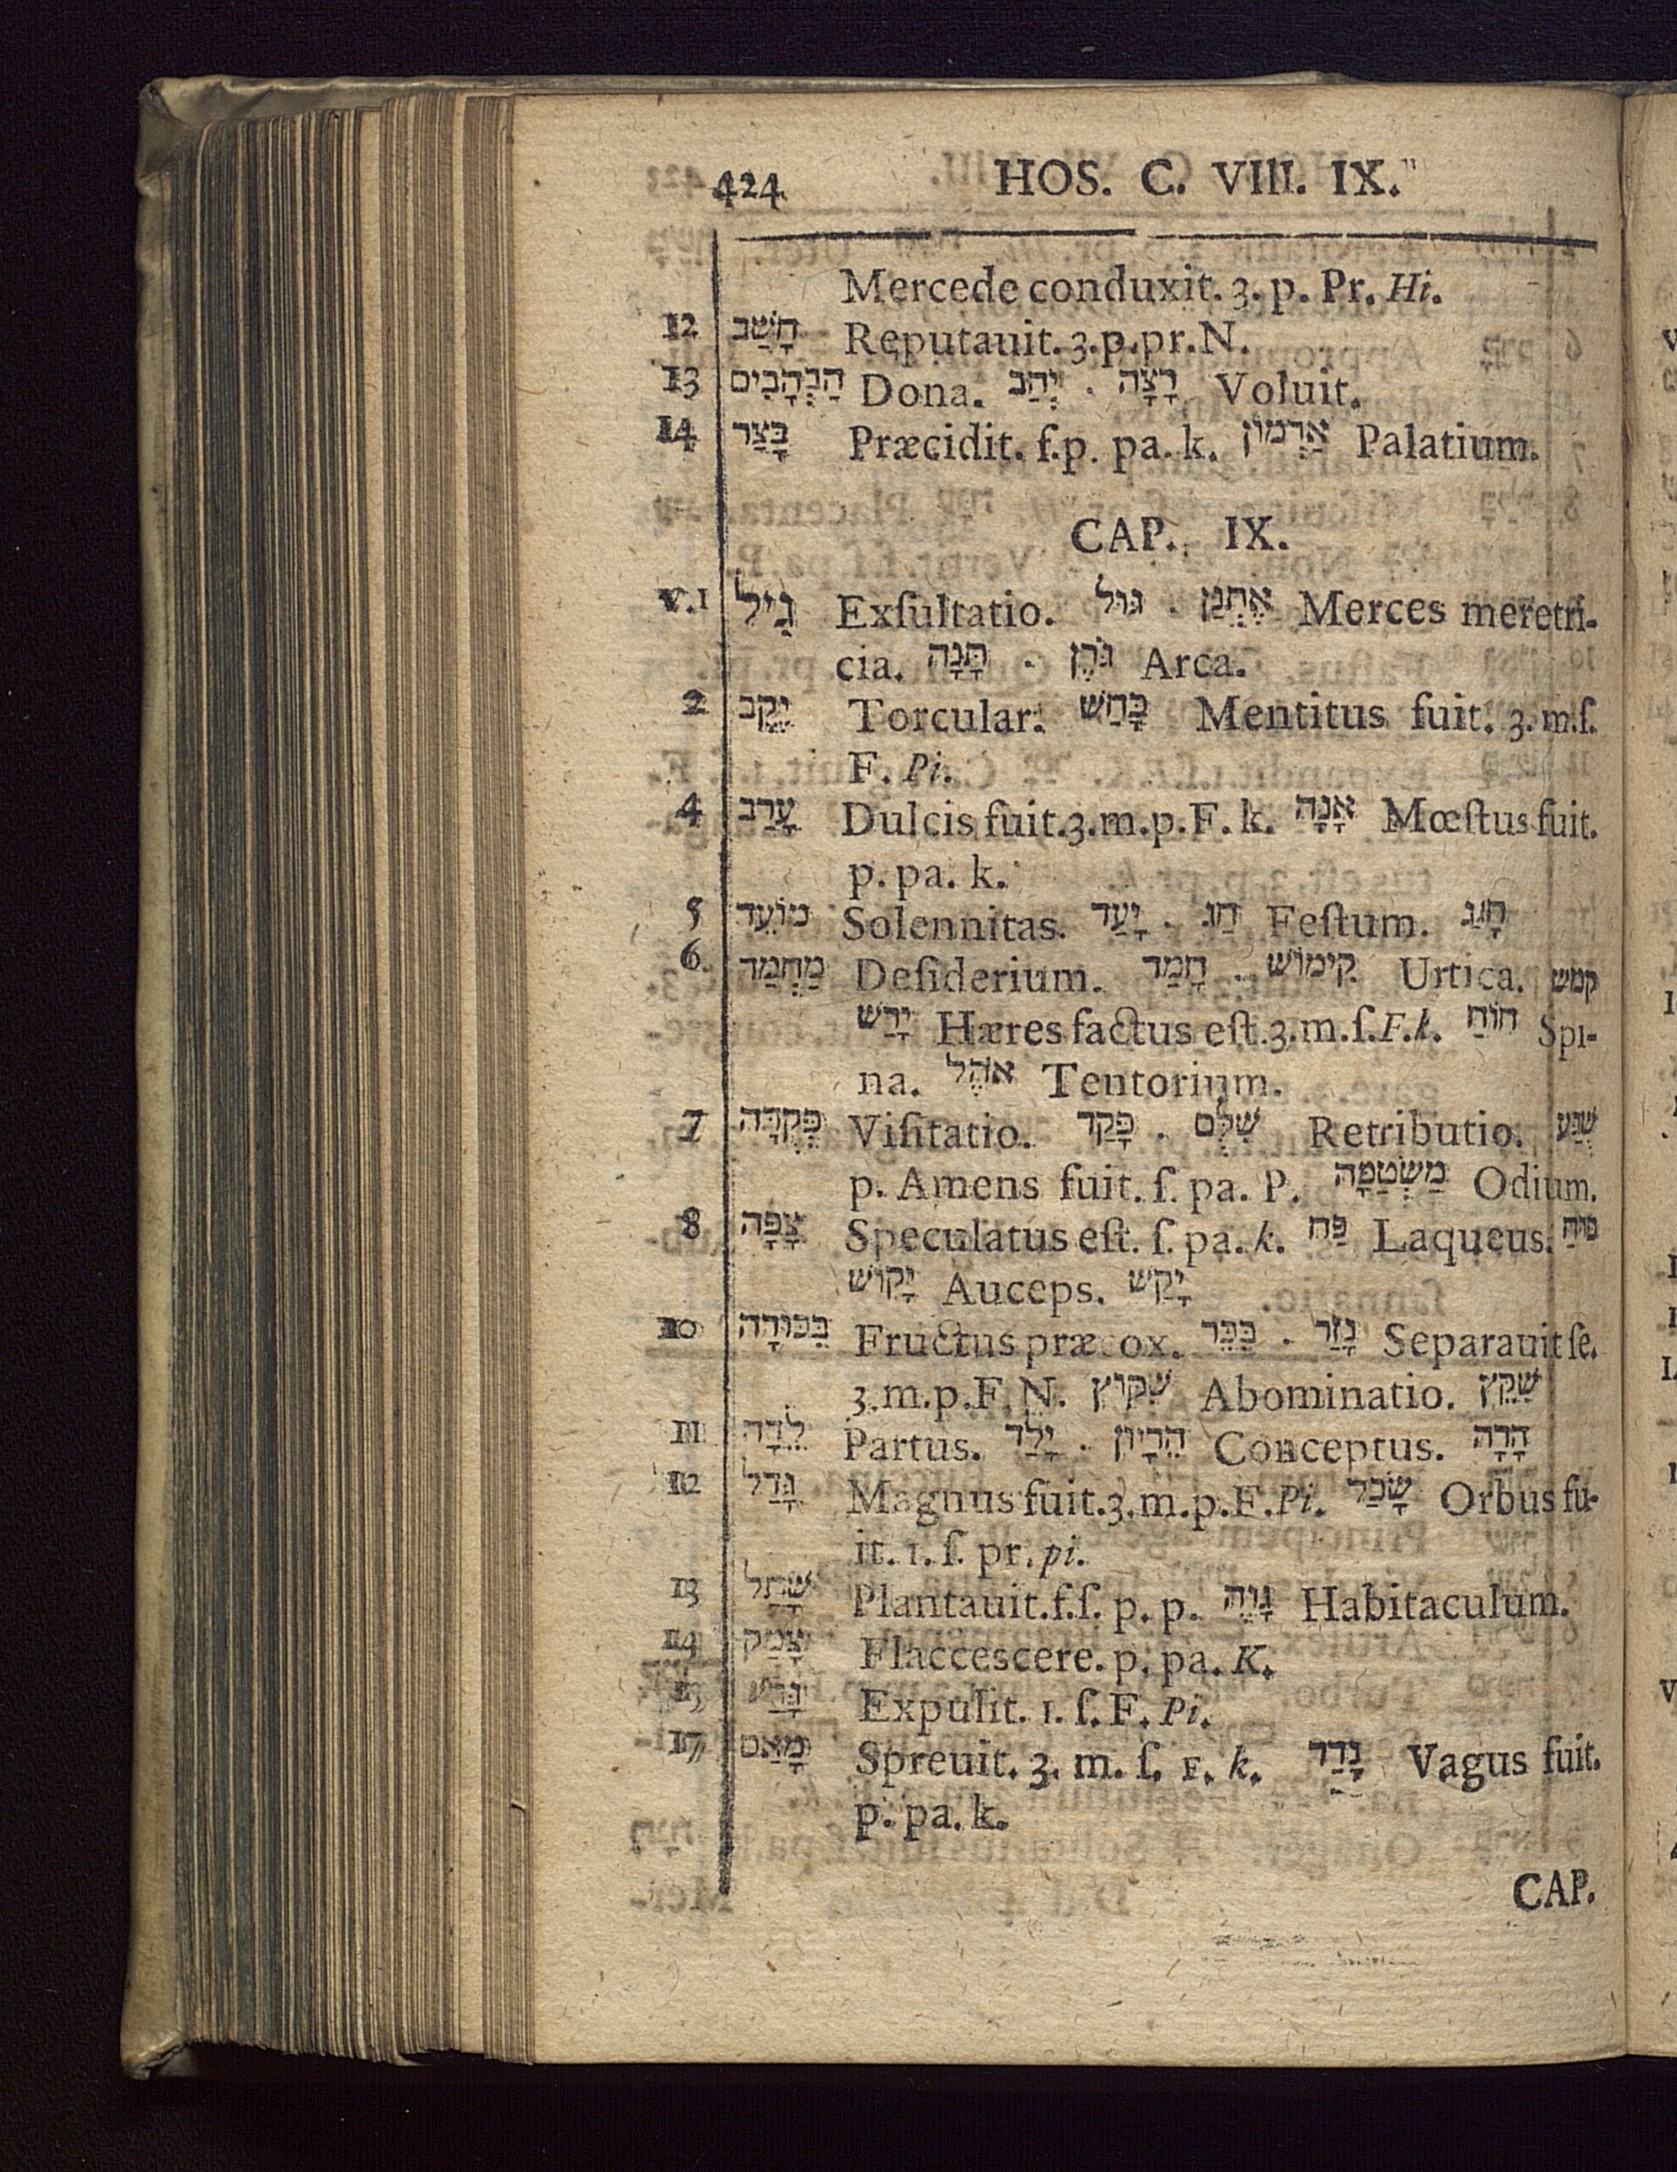 424 HOS. C. VIII. IX.
Mercede conduxit. 3. p. Pr. Hi.
12 חָשַׁב Reputauit. 3.p.pr.N.
13 הַבְהָבִים Dona. יָהַב . רָצָה Voluit.
14 בָּצַר Præcidit. ſ.p. pa. k. אַרְמוֹן Palatium.
CAP. IX.
v.1 גִיל Exſultatio. גּוּל . אֶתְנַן Merces meretri-
cia. תָּנָה . גֹּרֶן Arca.
2 יֶקֶב Torcular. כָּחַשׁ Mentitus fuit. 3. m.ſ.
F. Pi.
4 עָרַב Dulcis fuit.3.m.p.F. k. אָנָה Mœſtus fuit.
p. pa. k.
5 מוֹעֵד Solennitas. יָעַד . חַג Feſtum. חָגַג
6. מַחְמַד Deſiderium. חָמַד . קִימוֹשׁ Urtica. קמש
יָרַשׁ Hæres factus eſt.3.m.ſ.F.k. חוֹחַ Spi-
na. אֹהֶל Tentorium.
7 פְּקֻדָּה Viſitatio. פָּקַד . שִׁלֻּם Retributio. שָׁגַע
p. Amens fuit. ſ. pa. P. מַשְׂטֵמָה Odium.
8 צָפָה Speculatus eſt. ſ. pa. k. פַּח Laqueus. פּוּחַ
יָקוֹשׁ Auceps. יָקַשׁ
10 בִּכּוּרָה Fructus præcox. בִּכֵּר . נָזַר Separauit ſe.
3.m.p.F.N. שִׁקּוּץ Abominatio. שִׁקֵּץ
11 לֵדָה Partus. יָלַד . הֵרָיוֹן Conceptus. הָרָה
12 גָּדַל Magnus fuit.3.m.p.F.Pi. שָׁכַל Orbus fu-
it. 1. ſ. pr. pi.
13 שָׁתַל Plantauit.f.ſ. p. p. נָוֶה Habitaculum.
14 צָמַק Flaccescere. p. pa. K.
15 Expulit. 1. ſ. F. Pi.
17 מָאַס Spreuit. 3. m. ſ. F. k. נָדַד Vagus fuit.
p. pa. k.
CAP.